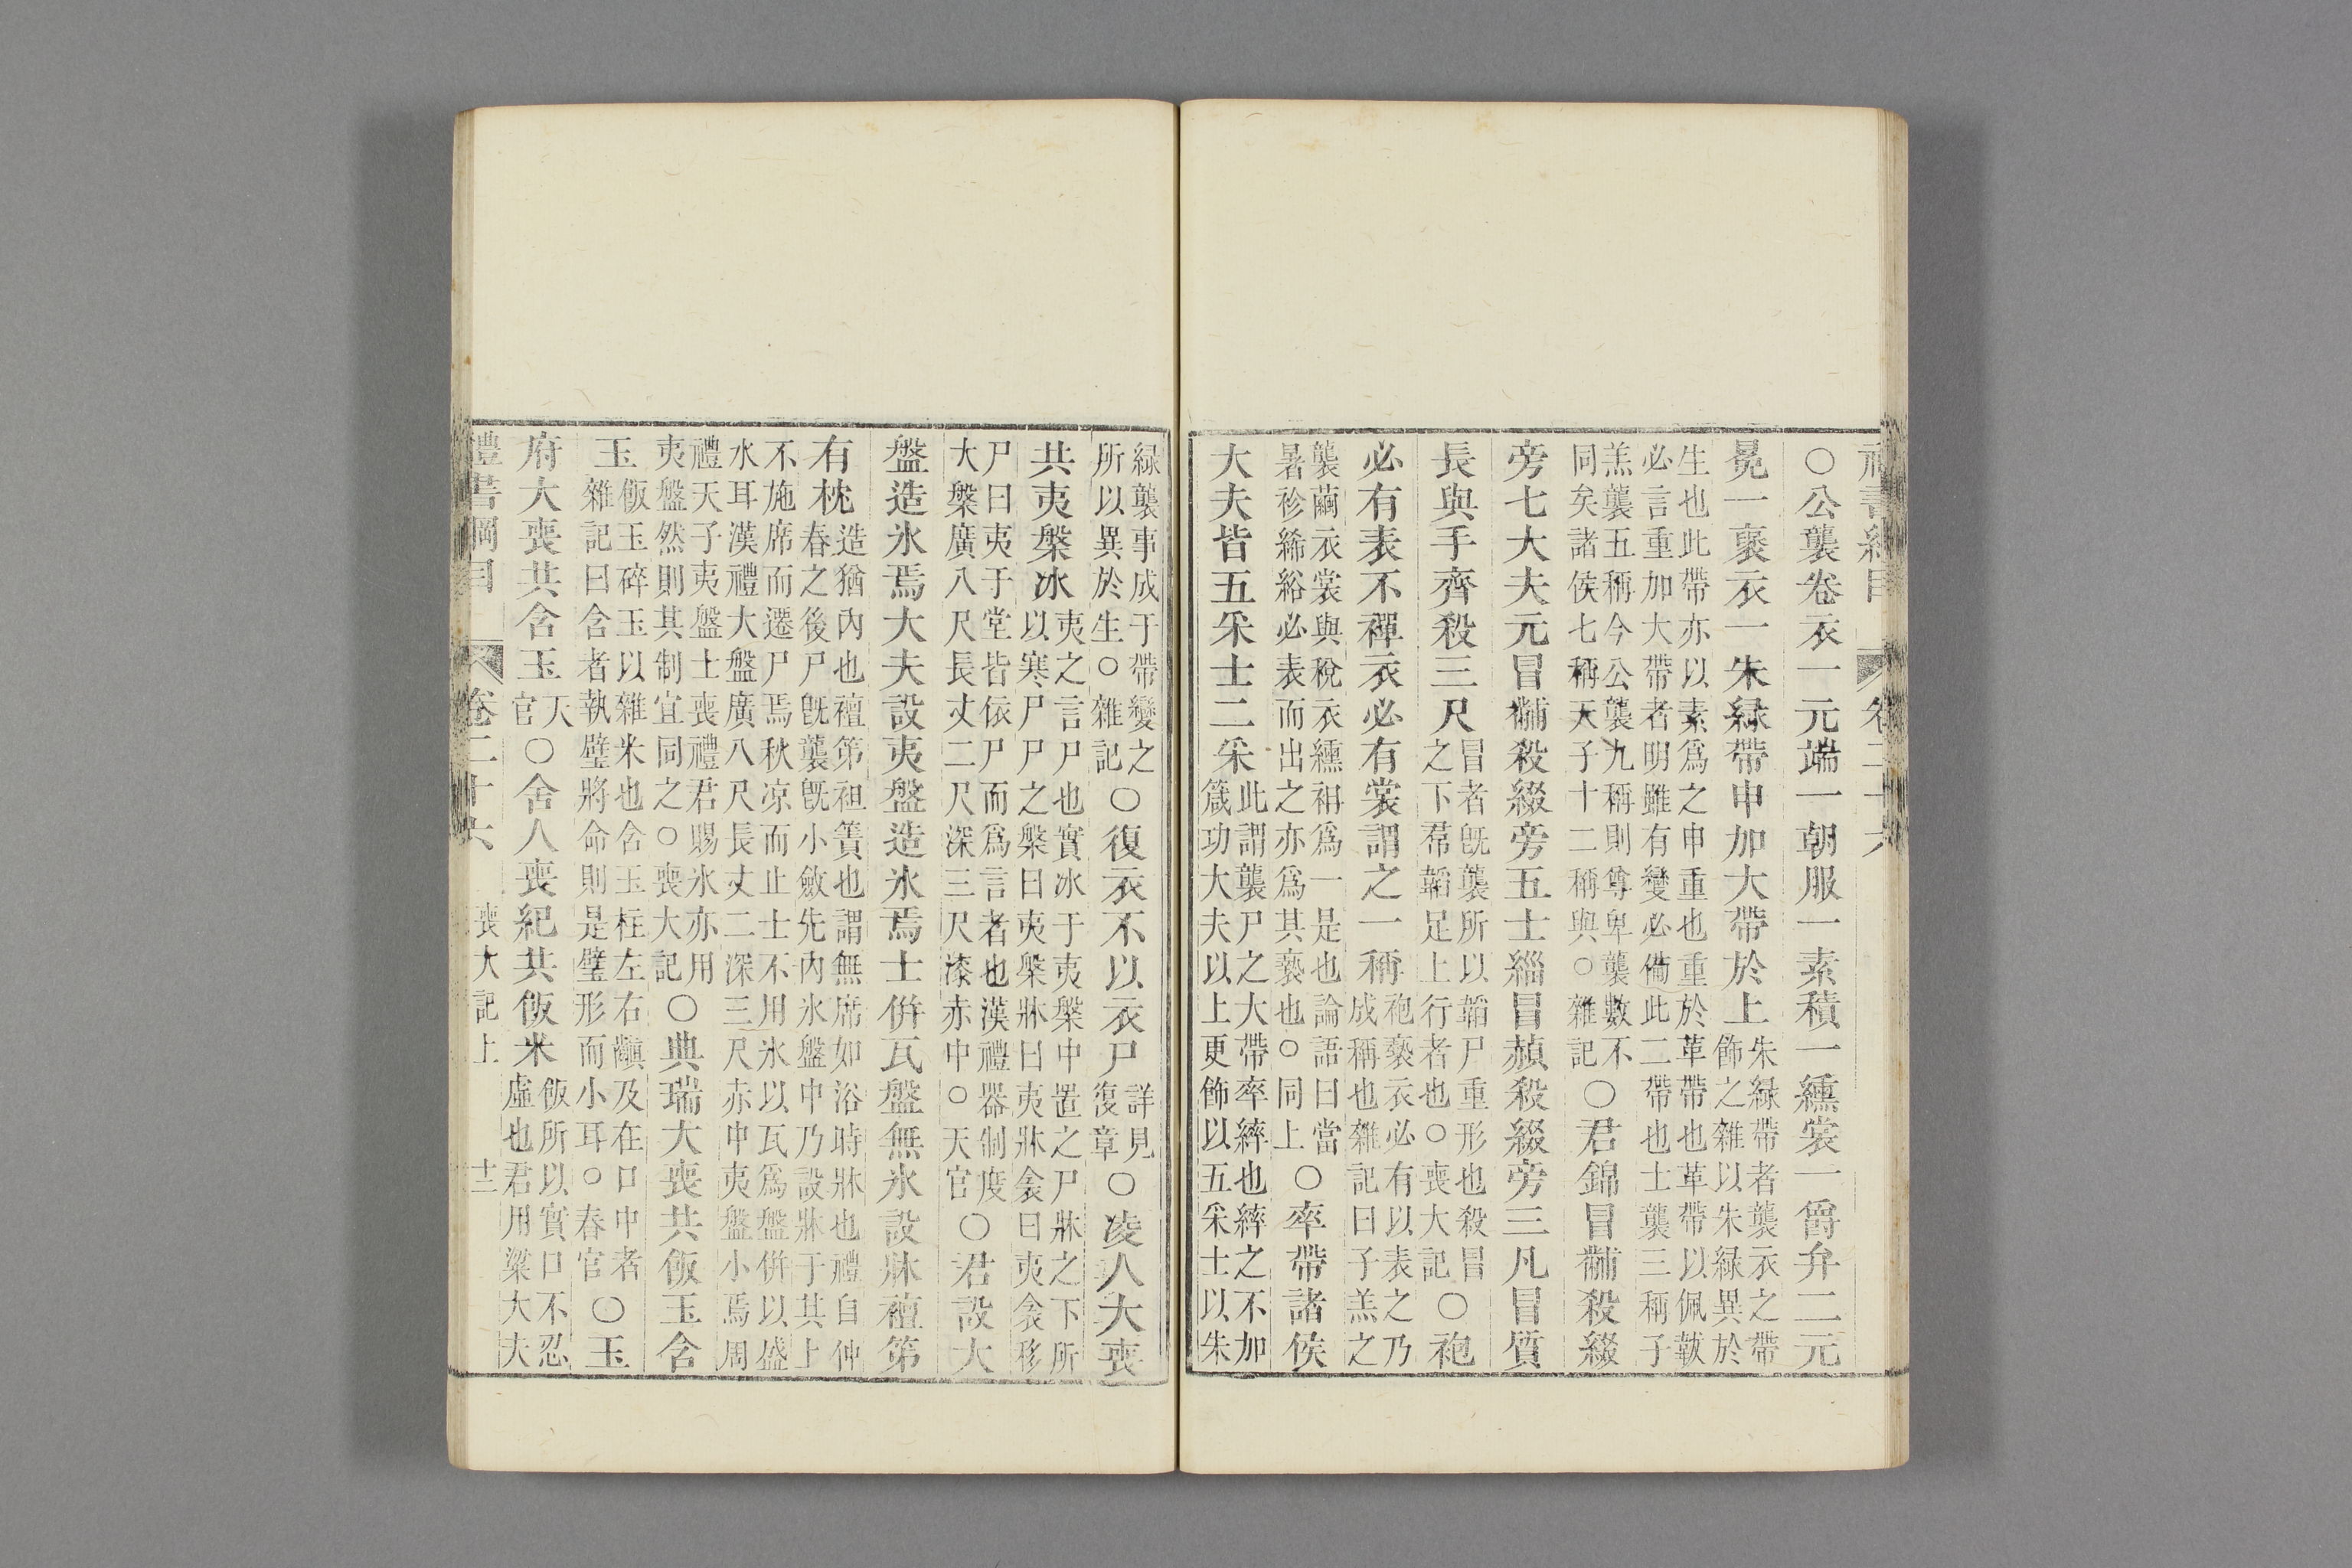 禮書綱目 卷二十六
○公襲卷衣一元端一朝服一素積一纁裳一爵弁二元
冕一褒衣一朱綠帶申加大帶於上朱綠帶者襲衣之帶飾之雜以朱綠異於
生也此帶亦以素爲之申重也重於革帶也革帶以佩韍
必言重加大帶者明雖有變必備此二帶也士襲三稱子
羔襲五稱今公襲九稱則尊卑襲數不同矣諸侯七稱天子十二稱與○雜記○君錦冒黼殺綴
旁七大夫元冒黼殺綴旁五士緇冒赬殺綴旁三凡冒質
長與手齊殺三尺冒者旣襲所以韜尸重形也殺冒之下帬韜足上行者也○喪大記○袍
必有表不禪衣必有裳謂之一稱袍褻衣必有以表之乃成稱也雜記曰子羔之
襲繭衣裳與稅衣纁袡爲一是也論語曰當暑袗絺綌必表而出之亦爲其褻也○同上○率帶諸侯
大夫皆五采士二采此謂襲尸之大帶率繂也繂之不加箴功大夫以上更飾以五采士以朱
綠襲事成于帶變之所以異於生○雜記○復衣不以衣尸詳見復章○凌人大喪
共夷槃冰夷之言尸也實冰于夷槃中置之尸牀之下所以寒尸尸之槃曰夷槃牀曰夷牀衾曰夷衾移
尸曰夷于堂皆依尸而爲言者也漢禮器制度大槃廣八尺長丈二尺深三尺漆赤中○天官○君設大
盤造氷焉大夫設夷盤造氷焉士倂瓦盤無氷設牀襢笫
有枕造猶內也襢笫袒簀也謂無席如浴時牀也禮自仲春之後尸旣襲旣小斂先內氷盤中乃設牀于其上
不施席而遷尸焉秋凉而止士不用氷以瓦爲盤倂以盛
水耳漢禮大盤廣八尺長丈二深三尺赤中夷盤小焉周
禮天子夷盤士喪禮君賜氷亦用夷盤然則其制宜同之○喪大記○典瑞大喪共飯玉含
玉飯玉碎玉以雜米也含玉柱左右齻及在口中者雜記曰含者執璧將命則是璧形而小耳○春官○玉
府大喪共含玉天官○舍人喪紀共飯米飯所以實口不忍虛也君用粱大夫
禮書綱目 卷二十六 喪大記上 十二